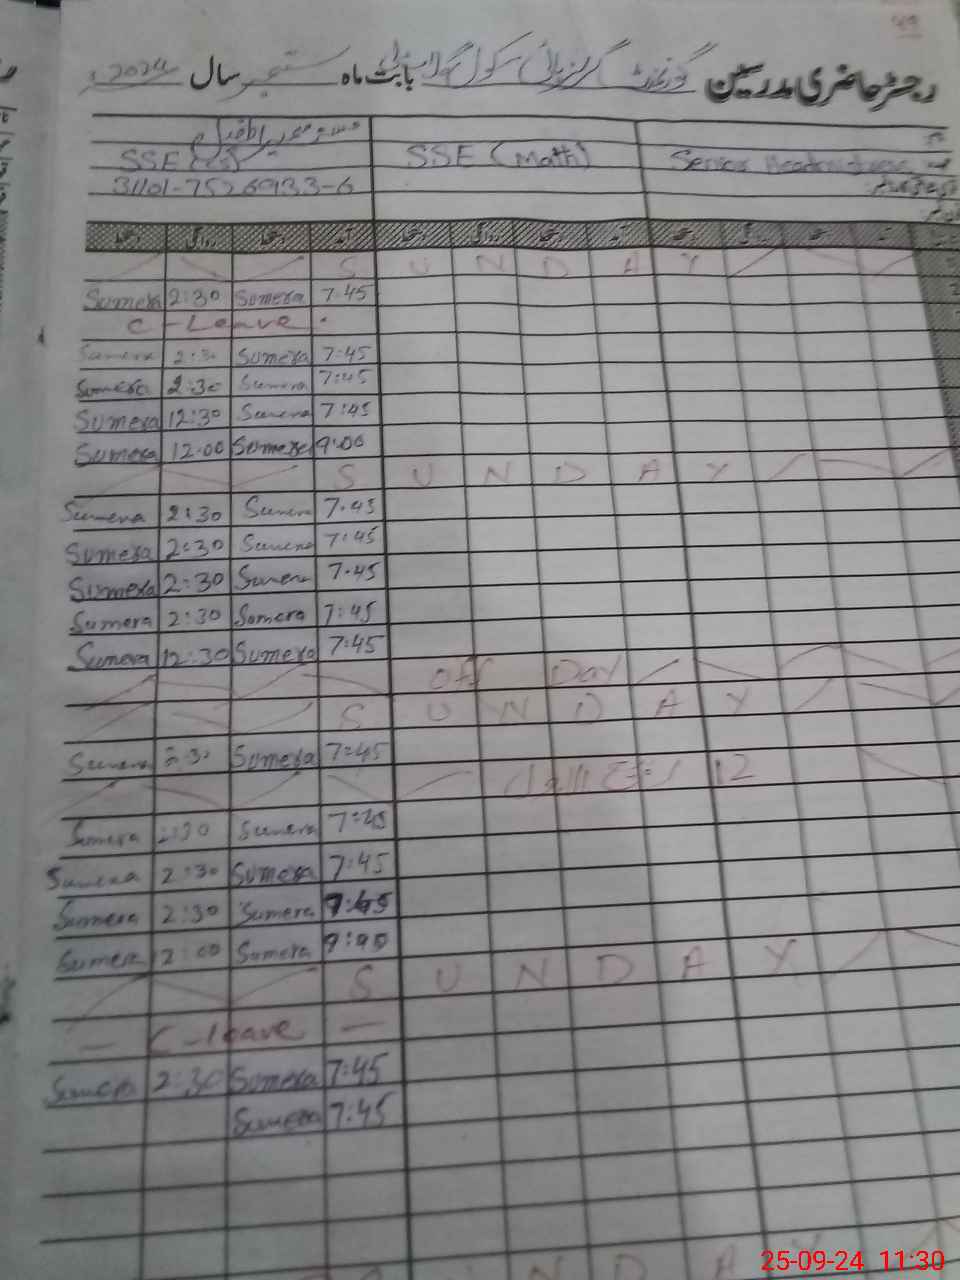 رجسٹر حاضری مدرسین گورنمنٹ گرلز ہائی سکول بابت ماہ ستمبر سال 2024
SSE (Math) SSE
31101-7526933-6
آمد دستخط روانگی دستخط آمد دستخط روانگی دستخط آمد دستخط روانگی دستخط
S U N D A Y
Sumera 2:30 Sumera 7:45
C-Leave
Sumera 2:30 Sumera 7:45
Sumera 2:30 Sumera 7:45
Sumera 12:30 Sumera 7:45
Sumera 12:00 Sumera 9:00
S U N D A Y
Sumera 2:30 Sumera 7:45
Sumera 2:30 Sumera 7:45
Sumera 2:30 Sumera 7:45
Sumera 2:30 Sumera 7:45
Sumera 12:30 Sumera 7:45
Off Day
S U N D A Y
Sumera 2:30 Sumera 7:45
12 ربیع الاول
Sumera 2:30 Sumera 7:45
Sumera 2:30 Sumera 7:45
Sumera 2:30 Sumera 7:45
Sumera 12:00 Sumera 9:00
S U N D A Y
C-leave
Sumera 2:30 Sumera 7:45
Sumera 7:45
N D A Y
25-09-24 11:30